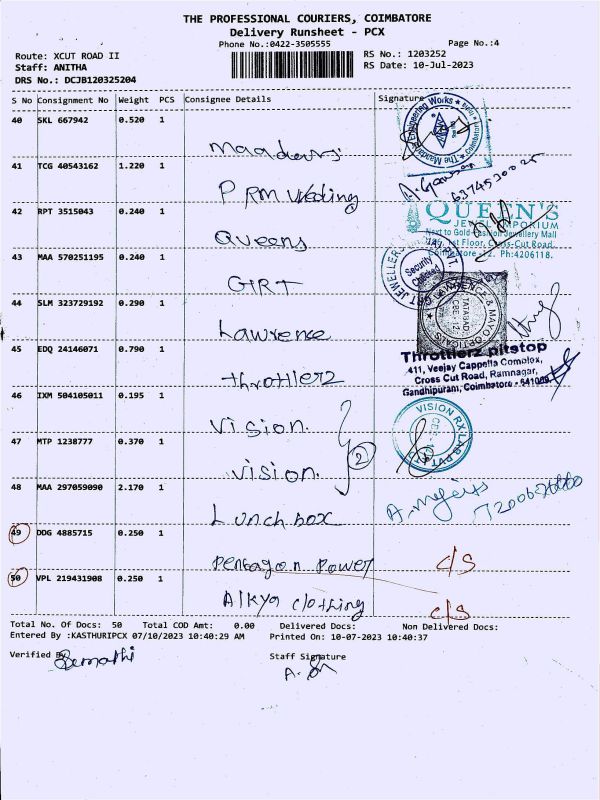 THE PROFESSIONAL COURIERS, COIMBATORE
Delivery Runsheet - PCX
Phone No.:0422-3505555
Page No.:4
Route: XCUT ROAD II
RS No.: 1203252
Staff: ANITHA
RS Date: 10-Jul-2023
DRS No.: DCJB120325204
S No Consignment No Weight PCS Consignee Details Signature
40 SKL 667942 0.520 1
Maaders
41 TCG 40543162 1.220 1
PRM Wedding
42 RPT 3515043 0.240 1
Queens
43 MAA 570251195 0.240 1
GIRT
44 SLM 323729192 0.290 1
Lawrence
45 EDQ 24146071 0.790 1
throttlerz
46 IXM 504105011 0.195 1
Vision.
47 MTP 1238777 0.370 1
Vision.
2
48 MAA 297059090 2.170 1
Lunch box
49 DDG 4885715 0.250 1
Pentagon Power c/s
50 VPL 219431908 0.250 1
Alkya clothing c/s
QUEEN'S
JEWEL EMPORIUM
Next to Gold Fashion Jewellery Mall
1st Floor, Cross-Cut Road,
Coimbatore -12. Ph:4206118.
Security
Checked
Throttlerz pitstop
411, Veejay Cappella Complex,
Cross Cut Road, Ramnagar,
Gandhipuram, Coimbatore - 641009.
VISION RX LAB PVT
Total No. Of Docs: 50 Total COD Amt: 0.00 Delivered Docs: Non Delivered Docs:
Entered By :KASTHURIPCX 07/10/2023 10:40:29 AM Printed On: 10-07-2023 10:40:37
Verified By
Staff Signature